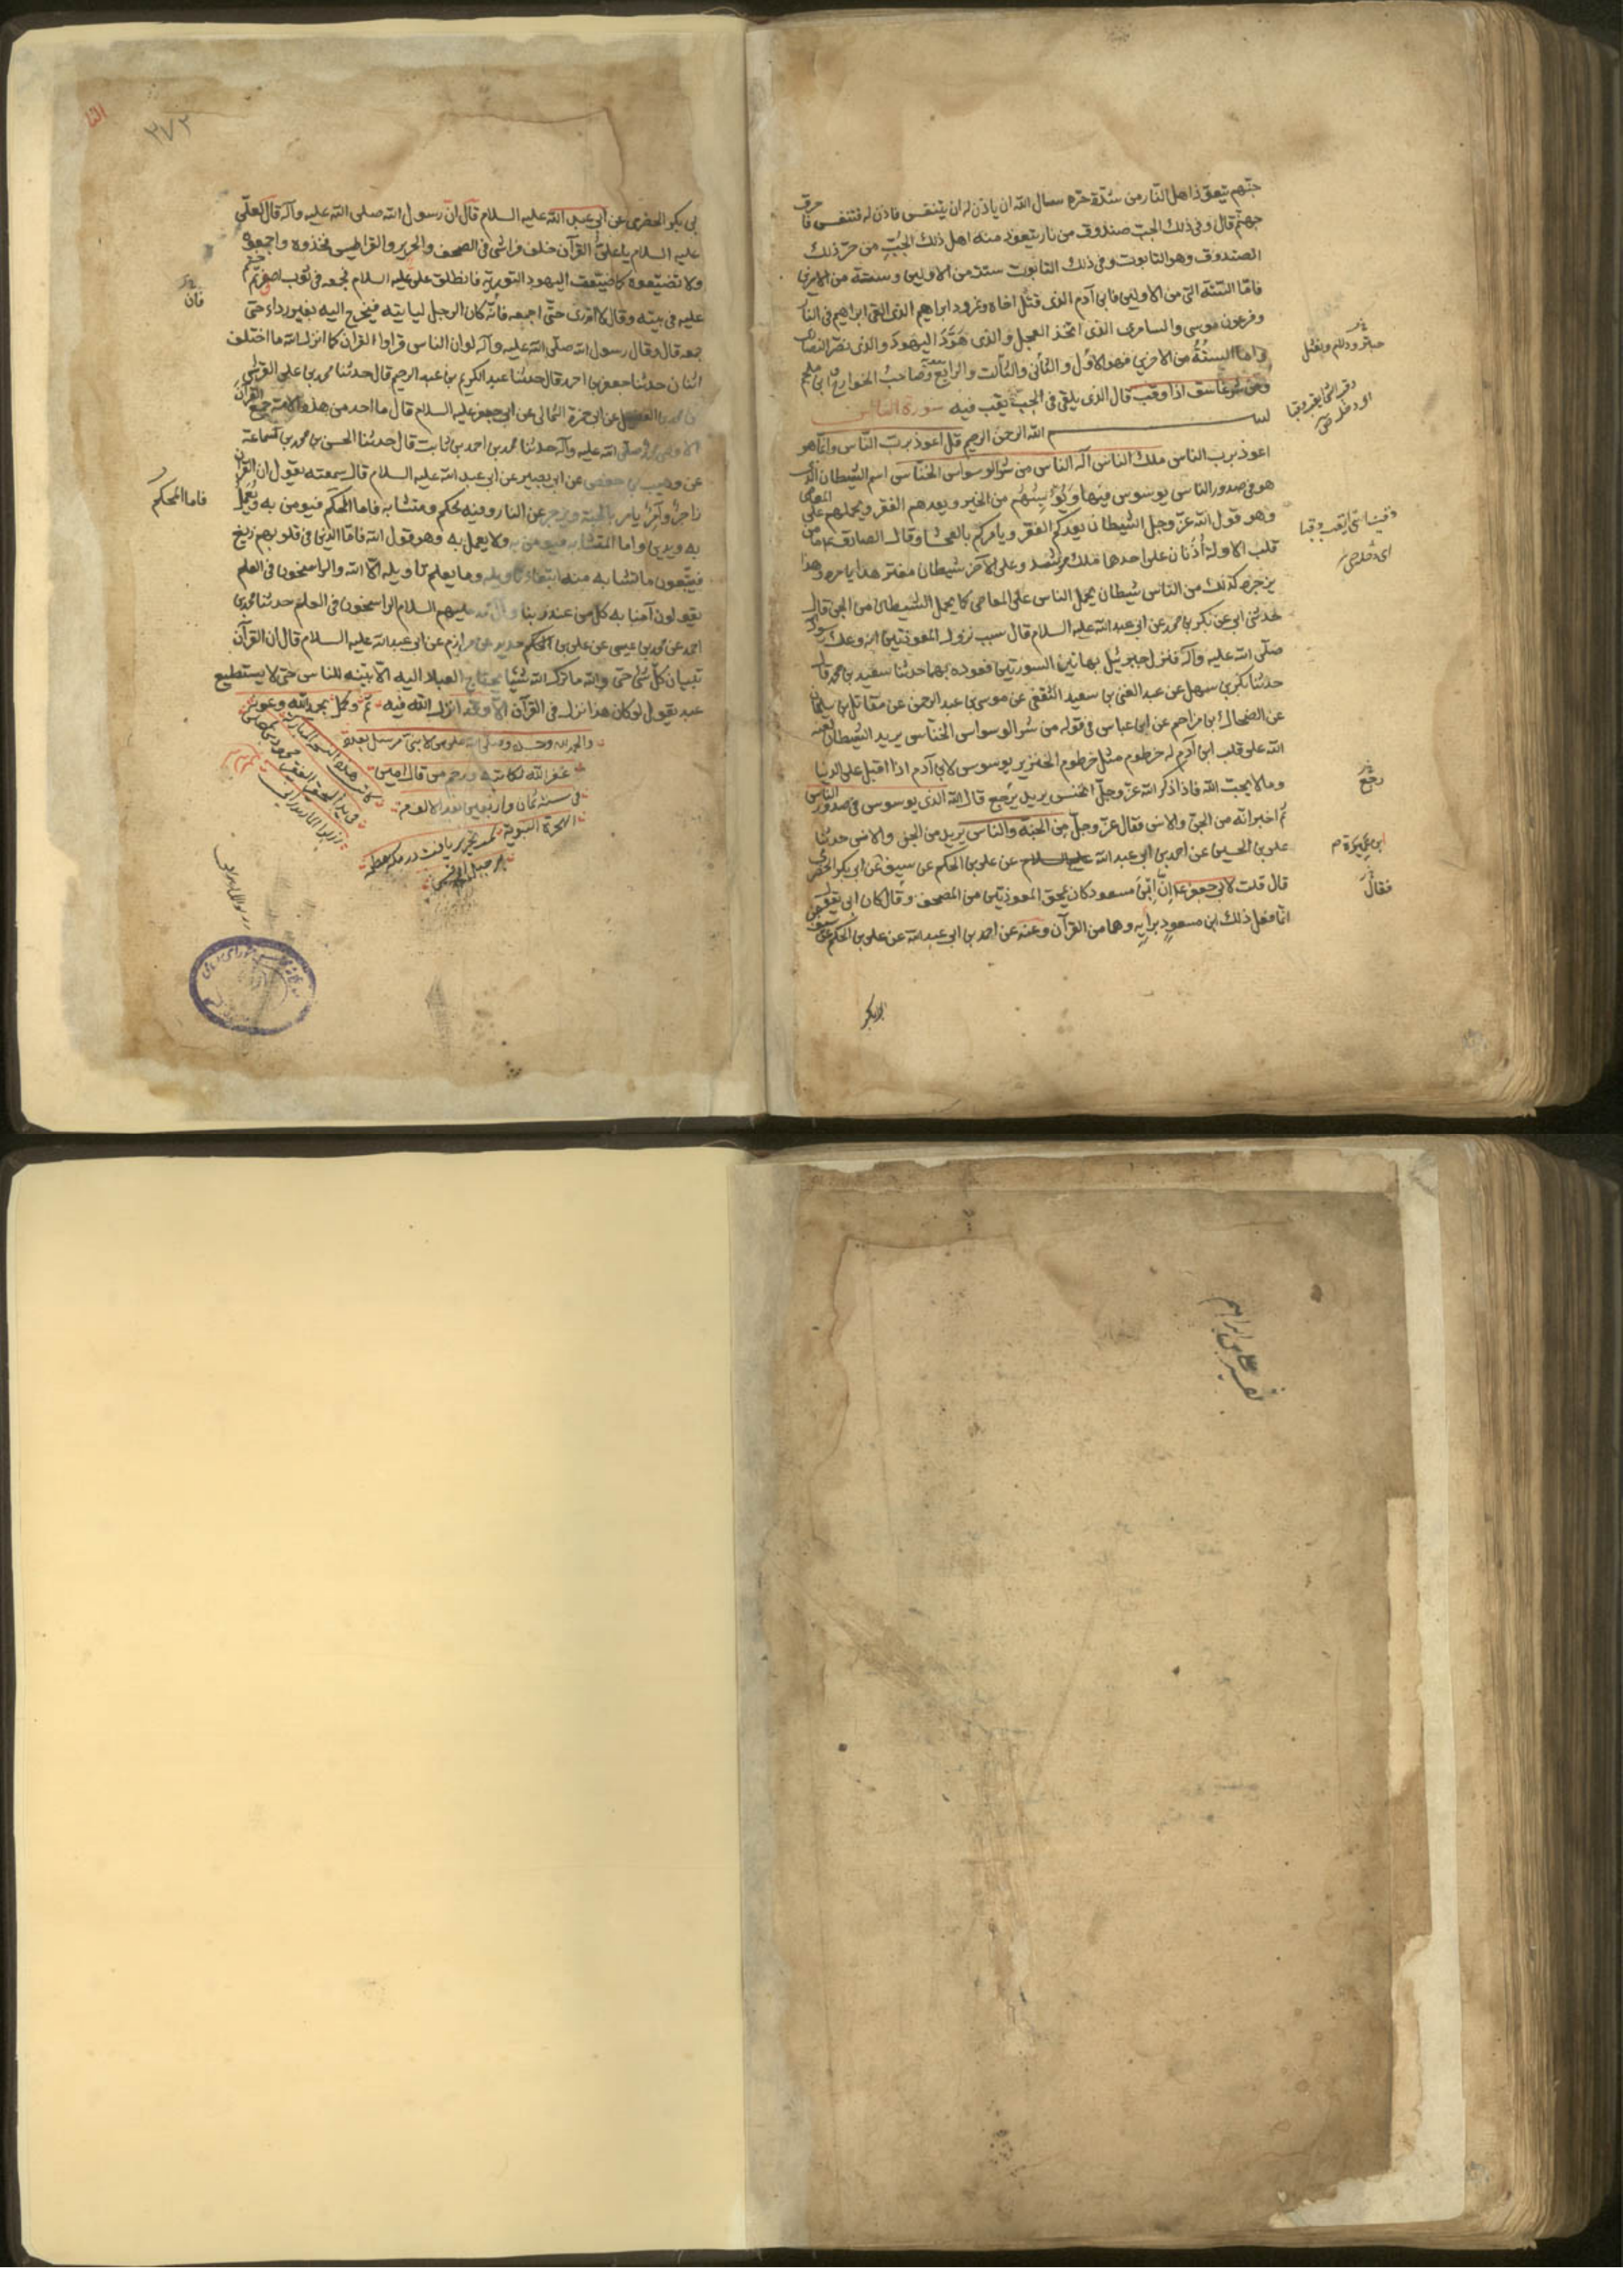 جهنم يتعوذ اهل النار من شدة حره سال الله ان ياذن له ان يتنفس فاذن له فتنفس فاحرق
جهنم قال وفى ذلك الجب صندوق من نار يتعوذ منه اهل ذلك الجب من حر ذلك
الصندوق وهو التابوت وفى ذلك التابوت ستة من الاولين وستة من الاخرين
فاما الستة التى من الاولين فابن آدم الذى قتل اخاه ونمرود ابراهيم الذى القى ابراهيم فى النار
وفرعون موسى والسامرى الذى اتخذ العجل والذى هود اليهود والذى نصر النصارى
واما الستة من الاخرين فهو الاول والثانى والثالث والرابع وصاحب الخوارج وابن ملجم
ومن شر غاسق اذا وقب قال الذى يلقى فى الجب يقب فيه سورة الناس
بسم الله الرحمن الرحيم قل اعوذ برب الناس وانما هو
اعوذ برب الناس ملك الناس اله الناس من شر الوسواس الخناس اسم الشيطان الذى
هو فى صدور الناس يوسوس فيها ويؤيسهم من الخير ويعدهم الفقر ويحملهم على المعاصى
وهو قول الله عز وجل الشيطان يعدكم الفقر ويامركم بالفحشا وقال الصادق ع ما من
قلب الا وله اذنان على احدها ملك مرشد وعلى الآخر شيطان مفتر هذا يامره وهذا
يزجره كذلك من الناس شيطان يحمل الناس على المعاصى كما يحمل الشيطان من الجن قال
حدثنى ابى عن بكر بن محمد عن ابى عبد الله عليه السلام قال سبب نزول المعوذتين انه وعك رسول
صلى الله عليه وآله فنزل جبرئيل بهاتين السورتين فعوذه بهما حدثنا سعيد بن محمد قال
حدثنا بكر بن سهل عن عبد الغنى بن سعيد الثقفى عن موسى بن عبد الرحمن عن مقاتل بن سليمان
عن الضحاك بن مزاحم عن ابن عباس فى قوله من شر الوسواس الخناس يريد الشيطان لعنه
الله على قلب ابن آدم له خرطوم مثل خرطوم الخنزير يوسوس لابن آدم اذا اقبل على الدنيا
وما لا يحب الله فاذا ذكر الله عز وجل انخنس يريد يرجع قال الله الذى يوسوس فى صدور الناس
ثم اخبر انه من الجن والانس فقال عز وجل من الجنة والناس يريد من الجن والانس حدثنا
على بن الحسين عن احمد بن ابى عبد الله عن على بن الحكم عن سيف عن ابى بكر الحضرمى
قال قلت لابى جعفر ع ان ابن مسعود كان يمحق المعوذتين من المصحف وقال كان ابى يقول
انما فعل ذلك ابن مسعود برايه وهما من القرآن وعنه عن احمد بن ابى عبد الله عن على بن الحكم عن سيف
رجع
ابن عميرة م
فقال
ابى بكر
٣٧٢
بى بكر الحضرمى عن ابى عبد الله عليه السلام قال ان رسول الله صلى الله عليه وآله قال لعلى
عليه السلام يا على القرآن خلف فراشى فى الصحف والحرير والقراطيس فخذوه واجمعوه
ولا تضيعوه كما ضيعت اليهود التورية فانطلق على عليه السلام فجمعه فى ثوب اصفر ثم ختم
عليه فى بيته وقال لا ارتدى حتى اجمعه فانه كان الرجل لياتيه فيخرج اليه بغير رداء حتى
جمعه قال وقال رسول الله صلى الله عليه وآله لو ان الناس قراوا القران كما انزل الله ما اختلف
اثنان حدثنا جعفر بن احمد قال حدثنا عبد الكريم بن عبد الرحيم قال حدثنا محمد بن على القرشى
عن ابى حمزة الثمالى عن ابى جعفر عليه السلام قال ما احد من هذه الامة جمع القرآن
الا وصى محمد صلى الله عليه وآله حدثنا محمد بن احمد بن ثابت قال حدثنا الحسن بن محمد بن سماعة
عن وهيب بن حفص عن ابى بصير عن ابى عبد الله عليه السلام قال سمعته يقول ان القرآن
زاجر وآمر يامر بالجنة ويزجر عن النار وفيه محكم ومتشابه فاما المحكم فيومن به ويعمل
به ويدين واما المتشابه فيومن به ولا يعمل به وهو قول الله فاما الذين فى قلوبهم زيغ
فيتبعون ما تشابه منه ابتغاء تاويله وما يعلم تاويله الا الله والراسخون فى العلم
يقولون آمنا به كل من عند ربنا وآل محمد عليهم السلام الراسخون فى العلم حدثنا محمد بن
احمد عن محمد بن عيسى عن على بن الحكم عن مرازم عن ابى عبد الله عليه السلام قال ان القرآن
تبيان كل شئ حتى والله ما ترك الله شيئا يحتاج العباد اليه الا بينه للناس حتى لا يستطيع
عبد يقول لو كان هذا نزل فى القرآن الا وقد انزل الله فيه تم وكمل بحمد الله وعونه
والحمد لله وحده وصلى الله على من لا نبى بعده
غفر الله لكاتبه ورحم من قال امين
فى سنة ثمان واربعين بعد الالف من
الهجرة النبوية تمت تحرير يافت در مكه معظمه
فان
فاما المحكم
تفسير على بن ابراهيم